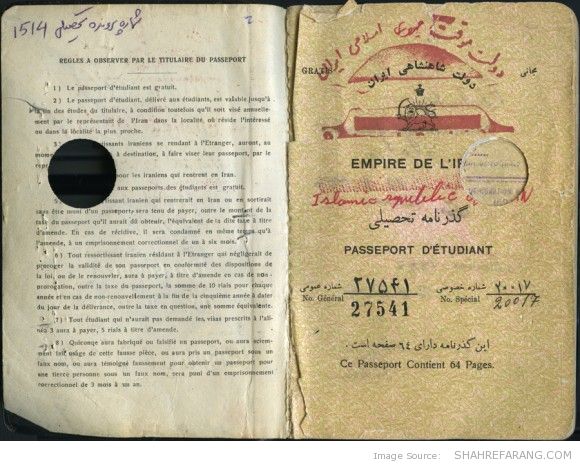 1514 شماره پرونده تحصیلی
2
RÈGLES A OBSERVER PAR LE TITULAIRE DU PASSEPORT
1) Le passeport d'étudiant est gratuit.
2) Le passeport d'étudiant, délivré aux étudiants, est valable jusqu'à
la fin des études du titulaire, à condition toutefois qu'il soit visé annuelle-
ment par le représentant de l'Iran dans la localité où réside l'intéressé
ou dans la localité la plus proche.
issants iraniens se rendant à l'Etranger, auront, au
mome à destination, à faire viser leur passeport, par le
repré
pour les iraniens qui rentrent en Iran.
aux passeports des étudiants est gratuit.
iraniens qui rentreront en Iran ou en sortirait
sans être muni d'un passeport sera tenu de payer, outre le montant de la
taxe du passeport qu'il aurait dû obtenir, l'équivalent de la dite taxe à titre
d'amende. En cas de récidive, il sera condamné en même temps qu'à
l'amende, à un emprisonnement correctionnel de un à six mois.
6) Tout ressortissant iranien résidant à l'Etranger qui négligerait de
proroger la validité de son passeport en conformité des dispositions de
la loi, ou de le renouveler, aura à payer, à titre d'amende en cas de non-
prorogation, outre la taxe du passeport, la somme de 10 rials pour chaque
année et en cas de non-renouvellement à la fin de la cinquième année à dater
du jour de la délivrance, outre la taxe en question, une somme équivalente.
7) Tout étudiant qui n'aurait pas demandé les visas prescrits à l'ali-
néa 3 aura à payer, 5 rials à titre d'amende.
8) Quiconque aura fabriqué ou falsifié en passeport, ou aura sciem-
ment fait usage de cette fausse pièce, ou aura pris un passeport sous un
faux nom, ou aura témoigné faussement pour obtenir un passeport pour
une tierce personne sous un faux nom, sera puni d'un emprisonnement
correctionnel de 3 mois à un an.
دولت موقت جمهوری اسلامی ایران
GRATIS
دولت شاهنشاهی ایران
مجانی
EMPIRE DE L'IR
Islamic republic
گذرنامه تحصیلی
PASSEPORT D'ÉTUDIANT
شماره عمومی ۲۷۵۴۱
No. Général 27541
شماره خصوصی ۲۰۰۱۷
No. Spécial 20017
این گذرنامه دارای ۶۴ صفحه است.
Ce Passeport Contient 64 Pages.
Image Source: SHAHREFARANG.COM